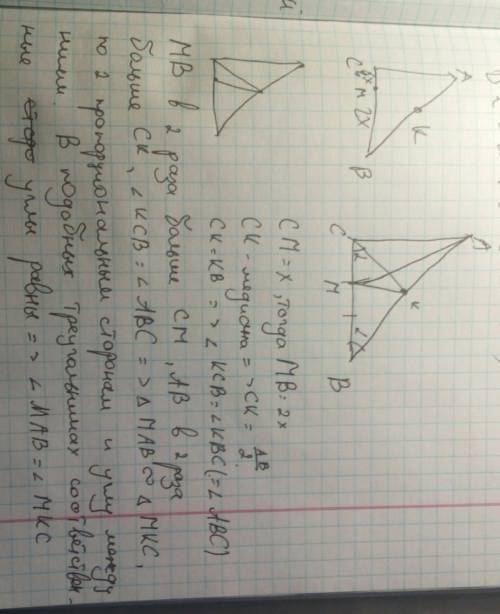 A
C
x
M
2x
K
B
A
C
M
K
B
CM = x, тогда MB = 2x
CK - медиана => CK = AB/2
CK = KB => ∠KCB = ∠KBC (= ∠ABC)
MB в 2 раза больше CM, AB в 2 раза
больше CK, ∠KCB = ∠ABC => △MAB ∾ △MKC,
по 2 пропорциональным сторонам и углу между
ними. В подобных треугольниках соответствен-
ные углы равны => ∠MAB = ∠MKC